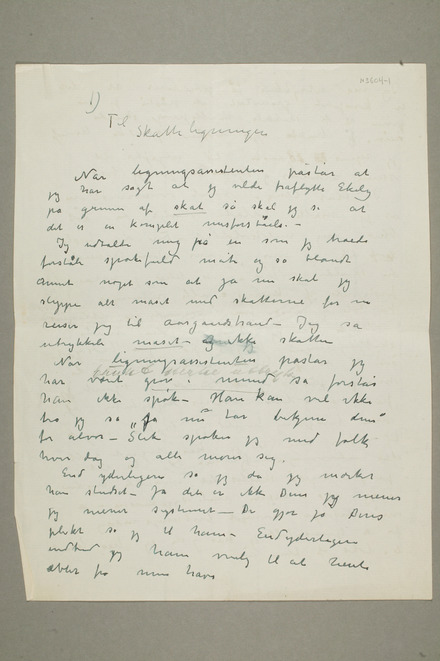 N3604-1
1)
Til
Skatteligningen
Når ligningsassistenten påstår at
jeg har sagt at jeg vilde fraflytte Ekely
på grunn af skat så skal jeg si at
det er en komplet misforståelse. –
Jeg udtalte mig på en som jeg troede
forståt spøkefuld måte og sa blandt
annet noget som at ja nu skal jeg
slippe alt maset med skatterne for nu
reiser jeg til Aasgaardstrand – Jeg sa
uttrykkelig maset – ikke skatten
Når ligningsassistenten påstår jeg
har vært grov i mund så forstår
han ikke spøk – Han kan vel ikke
tro jeg sa „Ja nu tar betjene dem"
for alvor – Slik spøker jeg med folk
hver dag og alle morer seg.
End yderligere sa jeg da jeg merket
han studset – Ja det er ikke Dem jeg mener
jeg mener systemet – De gjør jo Deres
plikt sa jeg til ham – End yderligere
indbød jeg ham venlig til at hente
æbler fra min have